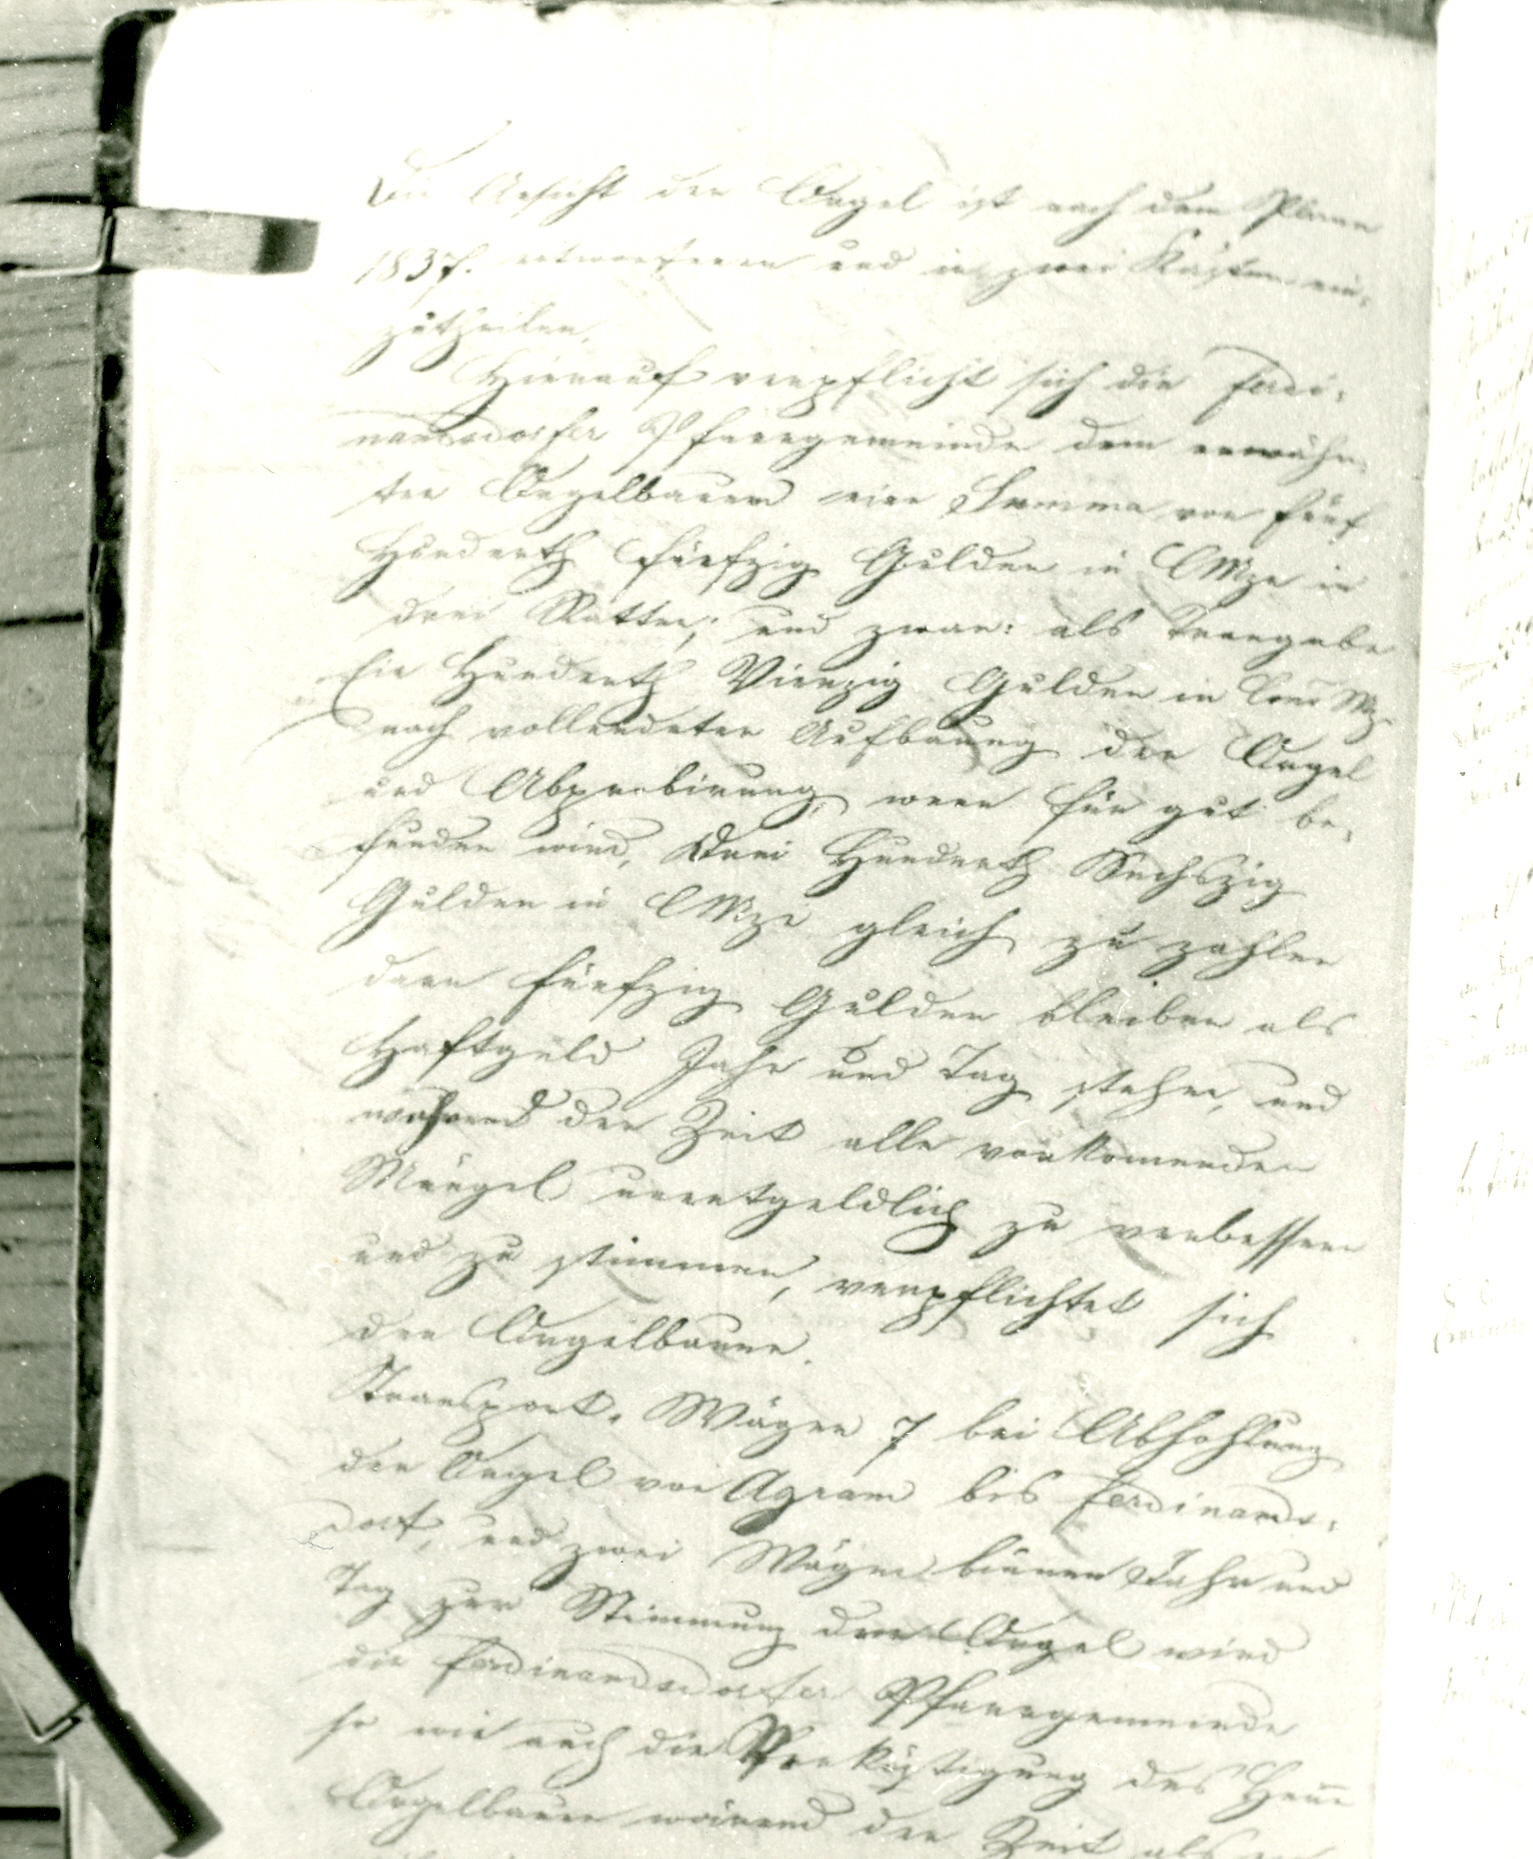 Die Ansicht der Orgel ist nach dem Plane
1837. entworfenen und in zwei Kästen ein-
zutheilen.
Hierauf verpflicht sich die Ferdi-
nandsdorfer Pfarrgemeinde dem erwähn
ten Orgelbauer eine Summa von fünf
Hunderth fünfzig Gulden in CMze in
drei Ratten; und zwar: als Darangabe
Ein Hunderth Vierzig Gulden in Conv Mz
nach vollendeter Aufbauung der Orgel
und Abprobirung, wenn für gut be-
funden wird, Drei Hunderth Sechszig
Gulden in CMze gleich zu zahlen
dann fünfzig Gulden bleiben als
Haftgeld Jahr und Tag stehen, und
während der Zeit alle vorkomenden
Mängel unentgeldlich zu verbessern
und zu stimmen, verpflichtet sich
der Orgelbauer.
Transport-Wägen 7 bei Abhohlung
der Orgel von Agram bis Ferdinands-
dorf, und zwei Wägen binnen Jahr und
Tag zur Stimmung der Orgel wird
die Ferdinandsdorfer Pfarrgemeinde
so wie auch die Verköstigung des Herrn
Orgelbauer wärend der Zeit als